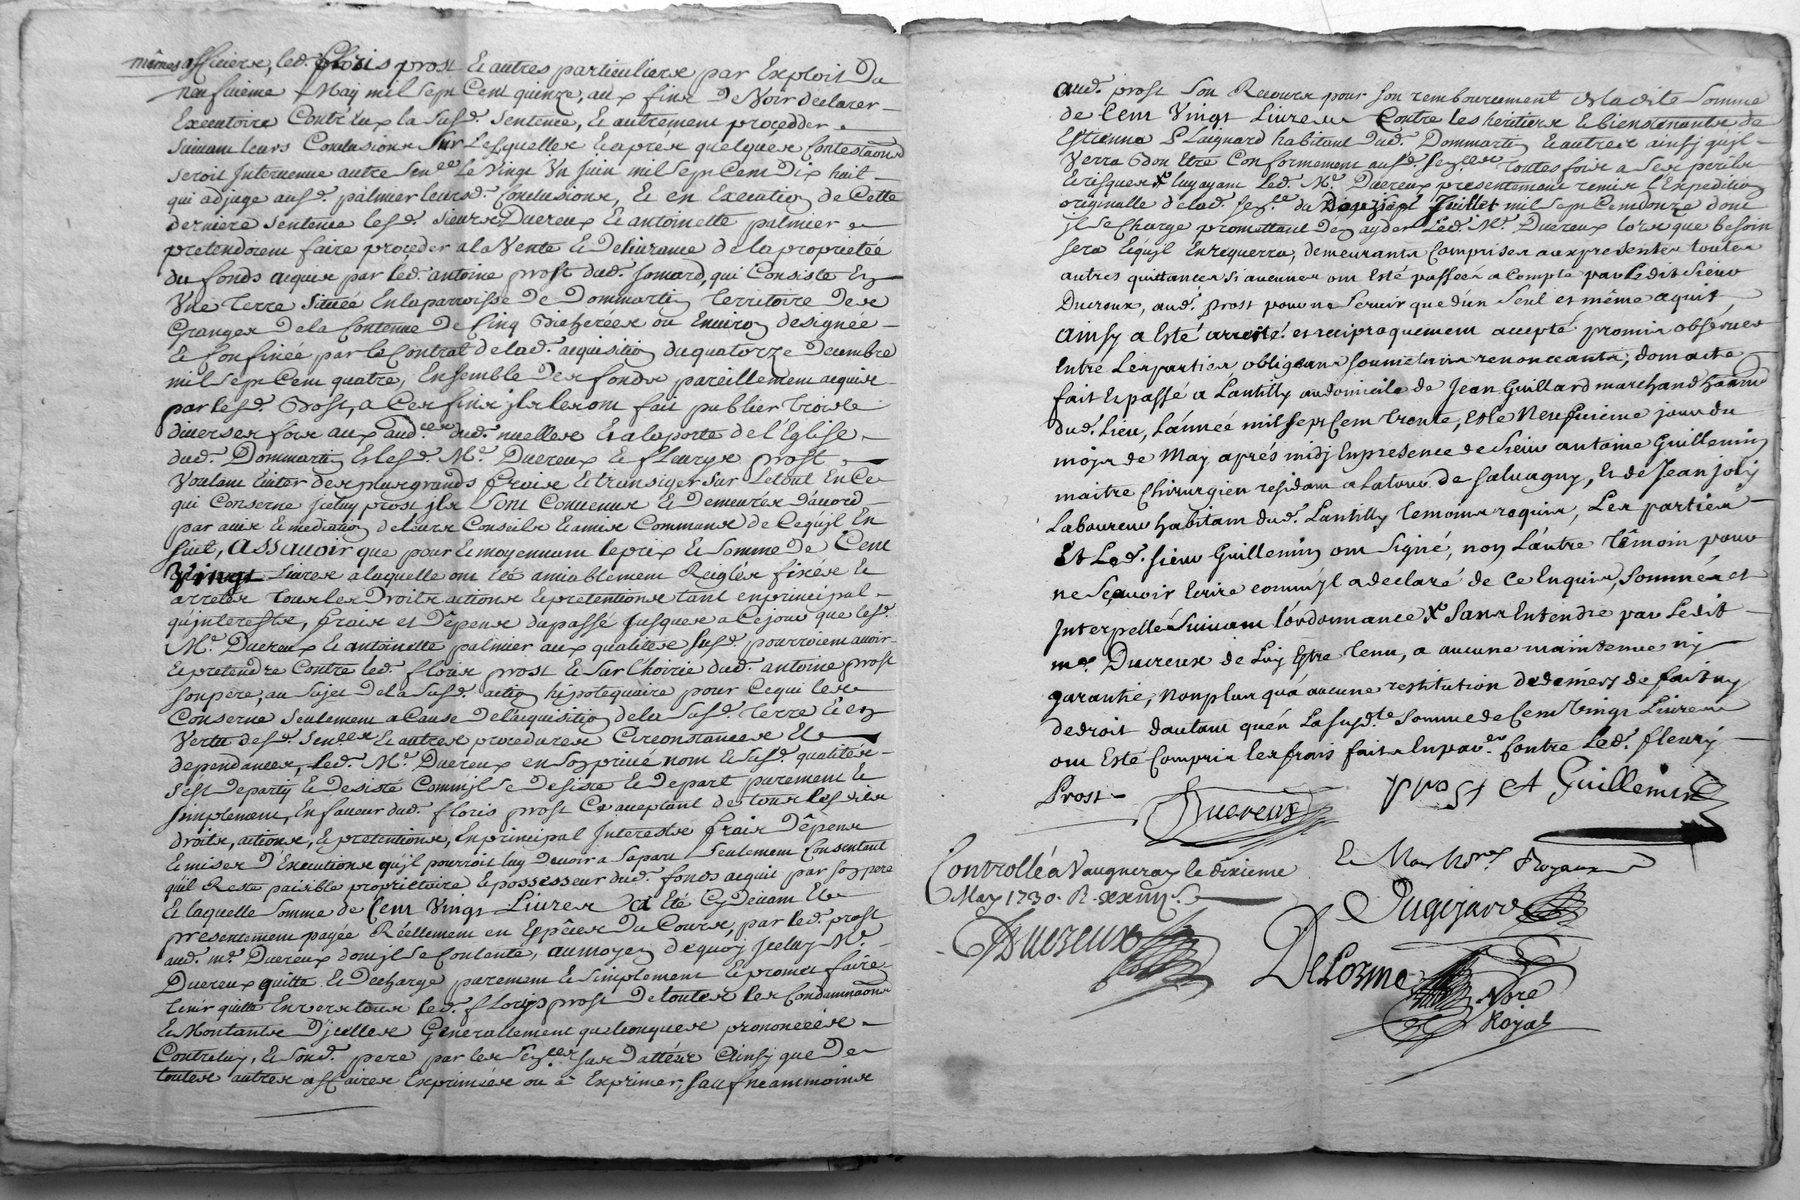 mêmes officiers, led. floris prost et autres particuliers par Exploit du
neufuieme May mil sept Cent quinze, aux fins de Voir declarer
Executoire Contr'eux la susd. sentence, et autrement proceder
suiuant leurs Conclusions sur Lesquelles et apres quelques Contestaons
seroit Interuenue autre senee Le Vingt Un Juin mil sept Cent dix huit
qui adjuge ausd. palmier leursd. Conclusions, et en Execution de Cette
derniere sentence lesd. sieurs Ducreux et antoinette palmier
pretendoient faire proceder a la Vente et deliurance de la proprieté
du fonds acquis par led. antoine prost dud. Jomard, qui Consiste En
Vne terre située en la parroisse de Dommartin territoire des
Granges de la Contenue de Cinq Bicherées ou Enuiron designée
et Confinée par le Contrat de lad. acquisition du quatorze decembre
mil sept Cent quatre, Ensemble des fonds pareillement acquis
par lesd. Prost, a Ces fins ils les ont fait publier trois
diuerses fois aux aud.ces dud. nuelles et a la porte de l'Eglise
dud. Dommartin et lesd. Me. Ducreux et fleurys prost
Voulant Euiter des plus grands frais et transiger sur Letout En Ce
qui Conserne Iceluy prost ils sont Conuenus et demeurés d'acord
par auis et mediation de leurs Conseils et amis Communs de Ce qu'il En
suit, assauoir que pour et moyennant le prix et somme de Cent
Vingt Liures a laquelle ont été amiablement Reiglés fixés et
arretés tous les droits actions et pretentions tant en principal
qu'interests, frais et Dépens du passé jusques a Ce jour que lesd.
Me. Ducreux et antoinette palmier aux qualités susd. pourroient auoir
et pretendre Contre led. floris prost et sur l'hoirie dud. antoine prost
son pere, au sujet de la susd. action hipotequaire pour Ce qui les
Conserne seulement a Cause de l'acquisition de la susd. terre et en
Vertu desd. sen.ces et autres procedures Circonstances et
dependances, led. Me. Ducreux en son priué nom et susd. qualités
s'est departy et desisté Comm'il se desiste et depart purement et
simplement, En faueur dud. floris prost Ce acceptant de tous lesdits
droits, actions, et pretentions, En principal Interests frais Dépens
et mises D'Executions qu'il pourroit luy deuoir a sa part seulement Consentant
qu'il Reste paisible proprietaire et possesseur dud. fonds acquit par son pere
Et laquelle somme de Cent Vingt Liures a été Cy deuant et
presentement payée Réellement en Espêces du Cours, par led. prost
aud. me. Ducreux dont il se Contente, au moyen dequoy Iceluy Me.
Ducreux quitte et decharge purement et simplement et promet faire
tenir quitte Enuers tous led. floris prost de toutes les Condamnaons
et Montants D'jcelles Generallement quelconques prononcées
Contre luy, et sond. pere par les sen.ces sus dattées Ainsy que De
toutes autres affaires Exprimées ou a Exprimer, sauf neanmoins
aud. prost son Recours pour son remboursement de ladite somme
de Cent Vingt Liures Contre les heritiers et bientenants de
Estienne Laignard habitant dud. Dommartin et autres ainsy qu'il
Verra Bon Etre Conformement ausd. sen.ces toutes fois a ses perils
et risques luy ayant led. Me. Ducreux presentement remis l'Expedition
originalle de lad. sen.ce du Douzieme Juillet mil sept Cent douze dont
il se Charge promettant d'en ayder led. Me. Ducreux lors que besoin
sera et qu'il En requerra, demeurants Comprises aux presentes toutes
autres quittances si aucunes ont Esté passées a Compte par Ledit Sieur
Ducreux, aud. prost pour ne seruir que d'un seul et même aquit
Ainsy a Esté arreté et reciproquement accepté promis obseruer
Entre Les parties obligeans soumettans renonceants, dont acte
fait et passé a Lantilly au domicile de Jean Guillard marchand habitant
dud. Lieu, l'année mil sept Cent trente, et Le Neufuieme jour du
mojs de May aprés midj En presence de sieur antoine Guillemin
maitre Chirurgien residant a la tour de saluagny, et de Jean Joly
Laboureur habitant dud. Lantilly temoins requis, Les parties
Et Led. sieur Guillemin ont signé, non L'autre têmoin pour
ne sçauoir Ecrire comm'il a declaré de Ce Enquis, sommés et
Interpellé suiuant l'ordonnance sans Entendre par Ledit
me. Ducreux de Luy Estre tenu, a aucune maintenue nj
garantie, non plus qu'a aucune restitution de deniers de fait ny
de droit d'autant qu'en La susd.te somme de Cent Vingt Liures
ont Esté Compris les frais faits En par.er Contre Led. fleury
Prost
Ducreux prost A Guillemin
Controllé a Vaugneray le dixieme
May 1730. R. xxiiij s.
Et Nous Nores Royaux
Ducreux
Delorme
Nore
Royal